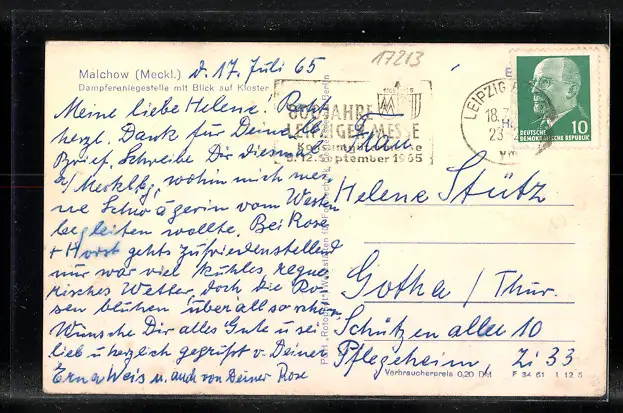 17213
Malchow (Meckl.)
Dampferanlegestelle mit Blick auf Kloster
d. 17. Juli 65
Meine liebe Helene! Recht
herzl. Dank für Deinen lb.
Brief. Schreibe Dir diesmal
a/ Mecklbg, wohin mich mei-
ne Schwägerin vom Westen
begleiten wollte. Bei Rose
+ Horst gehts zufriedenstellend
nur war viel kühles, regne-
risches Wetter, doch die Ro-
sen blühen überall so schön.
Wünsche Dir alles Gute u. sei
lieb u. herzlich gegrüßt v. Deiner
Erna Weis u. auch von Deiner Rose
800 JAHRE
LEIPZIGER MESSE
5.-12. September 1965
LEIPZIG
18.7.
23
DEUTSCHE
DEMOKRATISCHE REPUBLIK
10
Frau
Helene Stütz
Gotha / Thür.
Schützenallee 10
Pflegeheim, Zi 33
Verbraucherpreis 0,20 DM
F 34 61 1 12 5